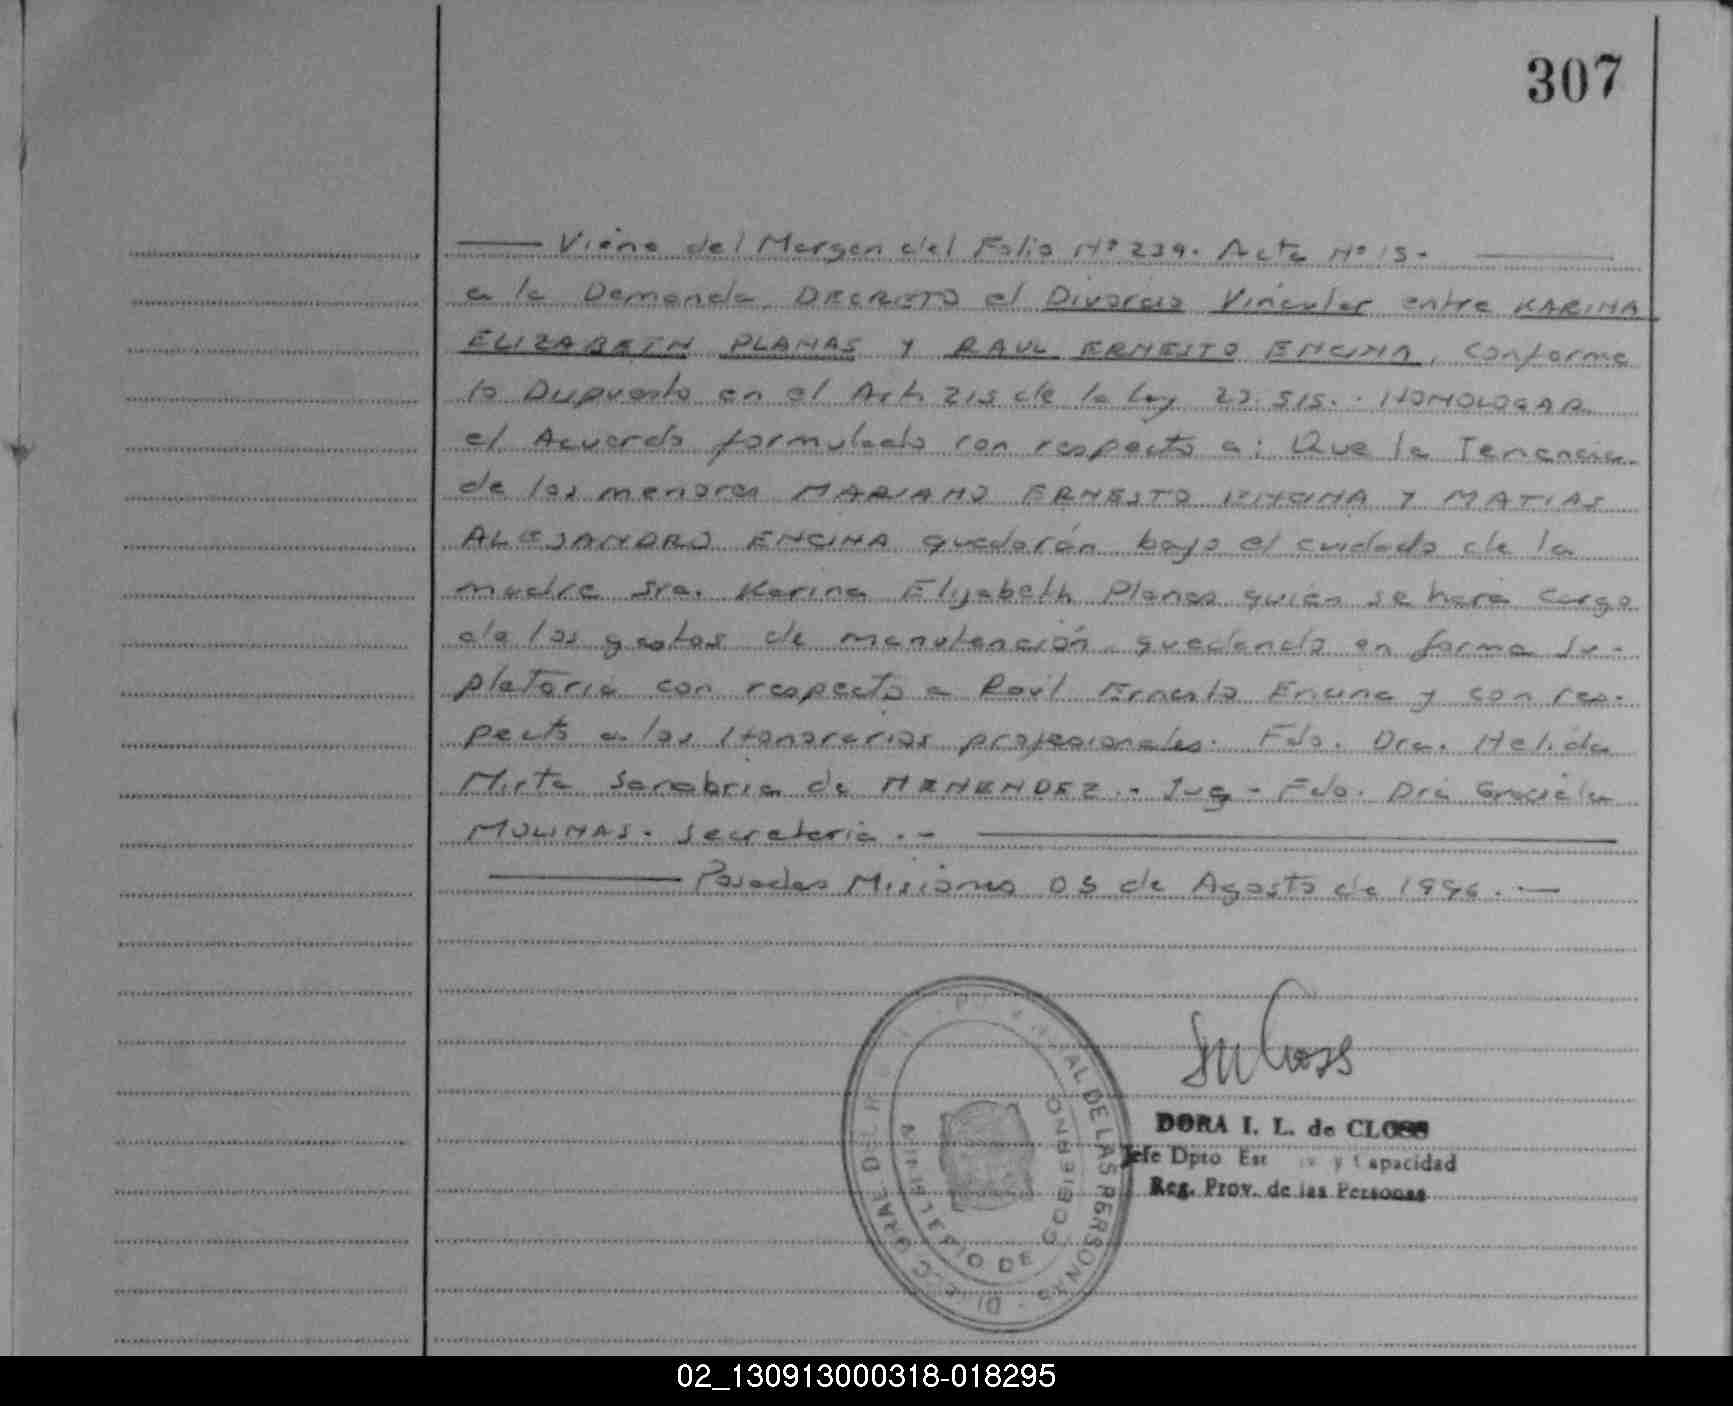 307
Viene del Margen del Folio Nº 239. Acta Nº 15.
a la Demanda. DECRETO el Divorcio Vincular entre KARINA
ELIZABETH PLANAS Y RAUL ERNESTO ENCINA, conforme
lo Dispuesto en el Art. 215 de la Ley 23.515. HOMOLOGAR
el Acuerdo formulado con respecto a: Que la Tenencia
de los menores MARIANO ERNESTO ENCINA Y MATIAS
ALEJANDRO ENCINA quedarán bajo el cuidado de la
madre Sra. Karina Elizabeth Planas quién se hará cargo
de los gastos de manutención quedando en forma su-
pletoria con respecto a Raúl Ernesto Encina y con res-
pecto a los Honorarios profesionales. Fdo. Dra. Helida
Mirta Sanabria de MENENDEZ.- Juez - Fdo. Dra Graciela
MOLINAS. Secretaria.-
Posadas Misiones 05 de Agosto de 1996.-
DORA I. L. de CLOSS
Jefe Dpto Est y Capacidad
Reg. Prov. de las Personas
DE LAS PERSONAS
MINISTERIO DE GOBIERNO
02_130913000318-018295